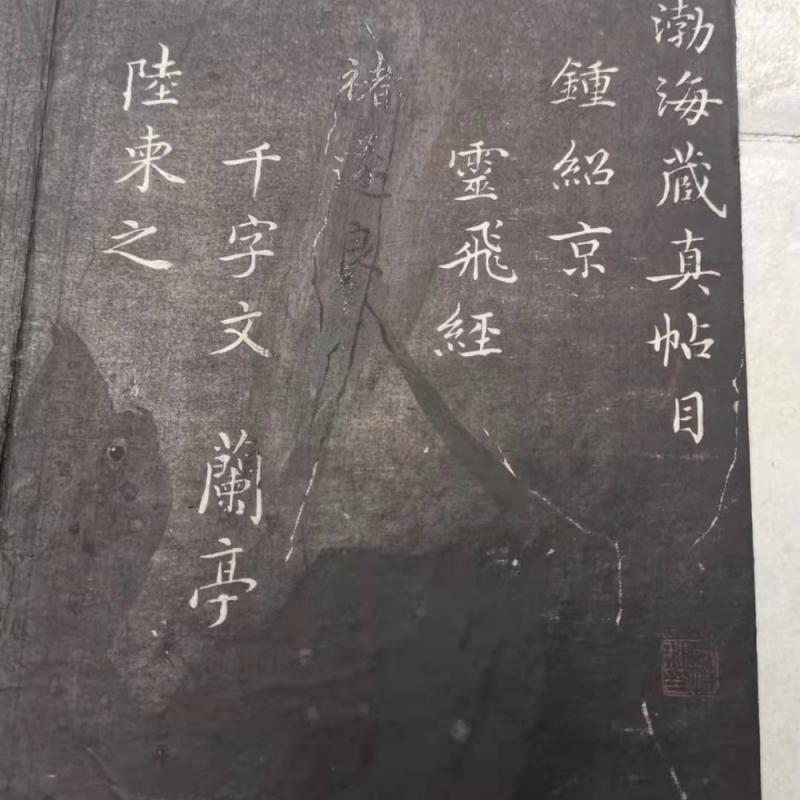 渤海蔵真帖目
鍾紹京
靈飛經
褚遂良
千字文 蘭亭
陸柬之